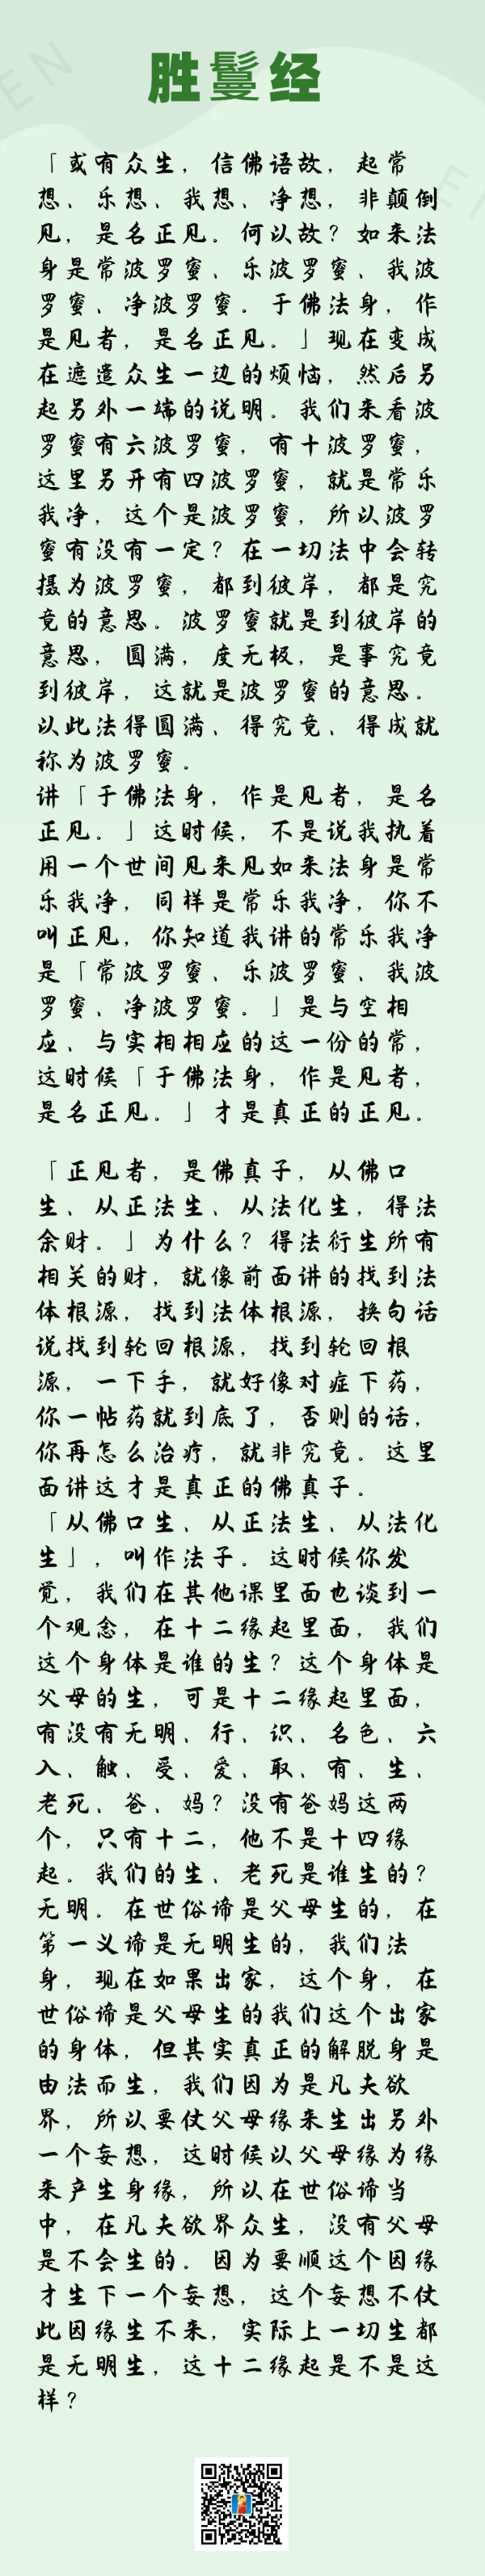 胜鬘经
「或有众生，信佛语故，起常
想、乐想、我想、净想，非颠倒
见，是名正见。何以故？如来法
身是常波罗蜜、乐波罗蜜、我波
罗蜜、净波罗蜜。于佛法身，作
是见者，是名正见。」现在变成
在遮遣众生一边的烦恼，然后另
起另外一端的说明。我们来看波
罗蜜有六波罗蜜，有十波罗蜜，
这里另开有四波罗蜜，就是常乐
我净，这个是波罗蜜，所以波罗
蜜有没有一定？在一切法中会转
摄为波罗蜜，都到彼岸，都是究
竟的意思。波罗蜜就是到彼岸的
意思，圆满，度无极，是事究竟
到彼岸，这就是波罗蜜的意思。
以此法得圆满、得究竟、得成就
称为波罗蜜。
讲「于佛法身，作是见者，是名
正见。」这时候，不是说我执着
用一个世间见来见如来法身是常
乐我净，同样是常乐我净，你不
叫正见，你知道我讲的常乐我净
是「常波罗蜜、乐波罗蜜、我波
罗蜜、净波罗蜜。」是与空相
应、与实相相应的这一份的常，
这时候「于佛法身，作是见者，
是名正见。」才是真正的正见。
「正见者，是佛真子，从佛口
生、从正法生、从法化生，得法
余财。」为什么？得法衍生所有
相关的财，就像前面讲的找到法
体根源，找到法体根源，换句话
说找到轮回根源，找到轮回根
源，一下手，就好像对症下药，
你一帖药就到底了，否则的话，
你再怎么治疗，就非究竟。这里
面讲这才是真正的佛真子。
「从佛口生、从正法生、从法化
生」，叫作法子。这时候你发
觉，我们在其他课里面也谈到一
个观念，在十二缘起里面，我们
这个身体是谁的生？这个身体是
父母的生，可是十二缘起里面，
有没有无明、行、识、名色、六
入、触、受、爱、取、有、生、
老死、爸、妈？没有爸妈这两
个，只有十二，他不是十四缘
起。我们的生、老死是谁生的？
无明。在世俗谛是父母生的，在
第一义谛是无明生的，我们法
身，现在如果出家，这个身，在
世俗谛是父母生的我们这个出家
的身体，但其实真正的解脱身是
由法而生，我们因为是凡夫欲
界，所以要仗父母缘来生出另外
一个妄想，这时候以父母缘为缘
来产生身缘，所以在世俗谛当
中，在凡夫欲界众生，没有父母
是不会生的。因为要顺这个因缘
才生下一个妄想，这个妄想不仗
此因缘生不来，实际上一切生都
是无明生，这十二缘起是不是这
样？